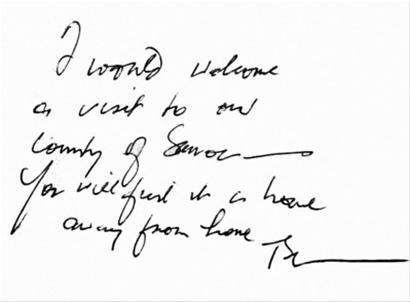 I would welcome
a visit to our
county of
You will find it a home
away from home